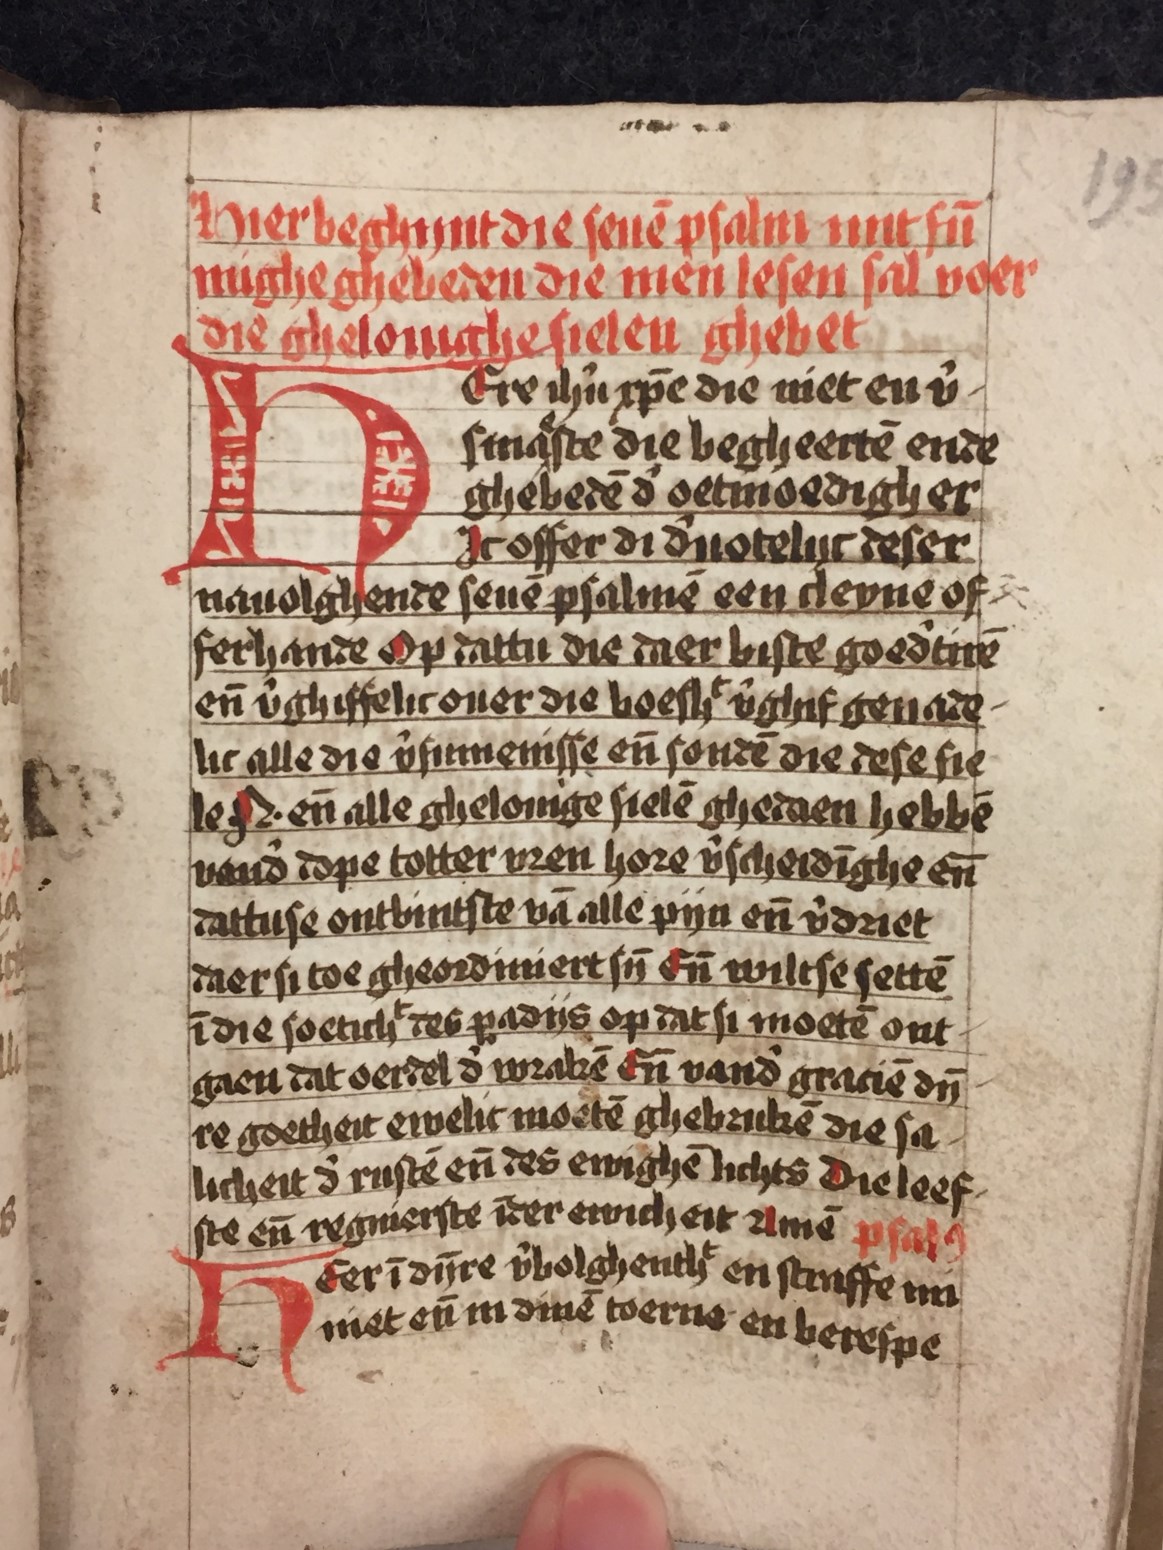 195
Hier beghynt die seuē psalm mit sū
mighe ghebeden die men lesen sal voer
die ghelouighe sielen ghebet
HEre ihū xp̄e die niet en v̾
smaͤste die begheertē ende
ghebedē d̾ oetmoedigher
Ic offer di d̾uotelijc deser
nauolghende seuē psalmē een cleyne of
ferhande Op dattu die daer biste goed̾tirē
en̄ v̾ghiffelic ouer die boeshᵗ v̾ghif genade
lic alle die v̾sumenisse en̄ sondē die dese sie
le N. en̄ alle ghelouige sielē ghedaen hebbē
vand̾ dope totter vren hore v̾scheidīghe en̄
dattuse ontbintste vā alle pijn en̄ v̾driet
daer si toe gheordiniert sȳ En̄ wiltse settē
ī die soetichᵗ des ꝑadijs op dat si moetē ont
gaen dat oerdel d̾ wrakē En̄ vand̾ graciē dȳ
re goetheit ewelic moetē ghebrukē die sa
licheit d̾ rustē en̄ des ewighē lichts Die leef
ste en̄ regnierste īder ewicheit Amē psalꝯ
HEer ī dȳre v̾bolghenthᵗ en straffe mi
niet en̄ in dinē toerne en berespe